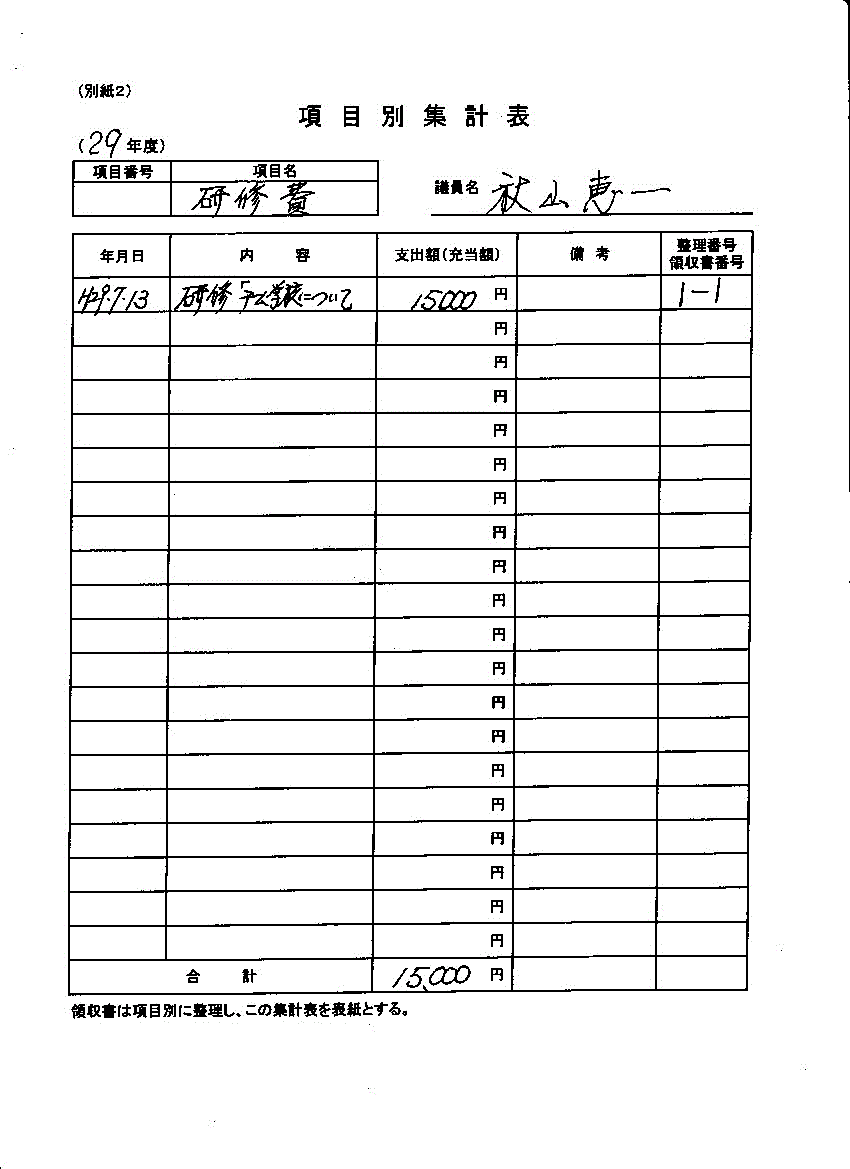 (別紙2)
項目別集計表
(29年度)
項目番号 項目名
研修費
議員名 秋山恵一
年月日 内容 支出額(充当額) 備考 整理番号 領収書番号
H29.7.13 研修「 について 15000円 1-1
円
円
円
円
円
円
円
円
円
円
円
円
円
円
円
円
円
円
円
合計 15,000円
領収書は項目別に整理し、この集計表を表紙とする。